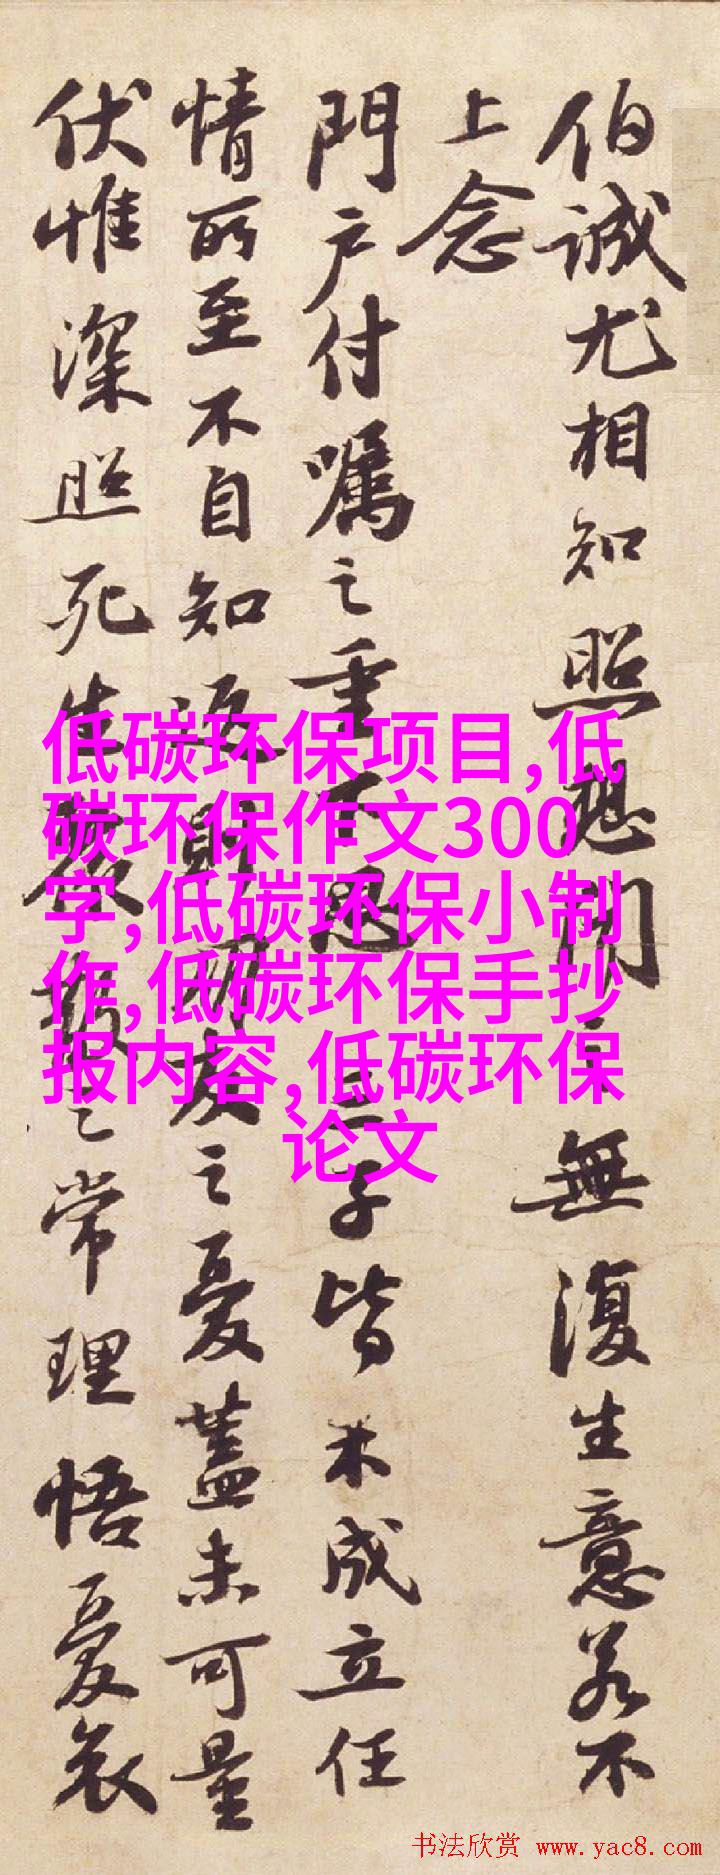 伯誠尤相知照想聞之無復生意若不
上念
門户付囑之重不思三子皆未成立任
情所至不自知返則朋友之憂蓋未可量
伏惟深照死生聚散之常理悟憂哀
低碳环保项目,低
碳环保作文300
字,低碳环保小制
作,低碳环保手抄
报内容,低碳环保
论文
书法欣赏 www.yac8.com